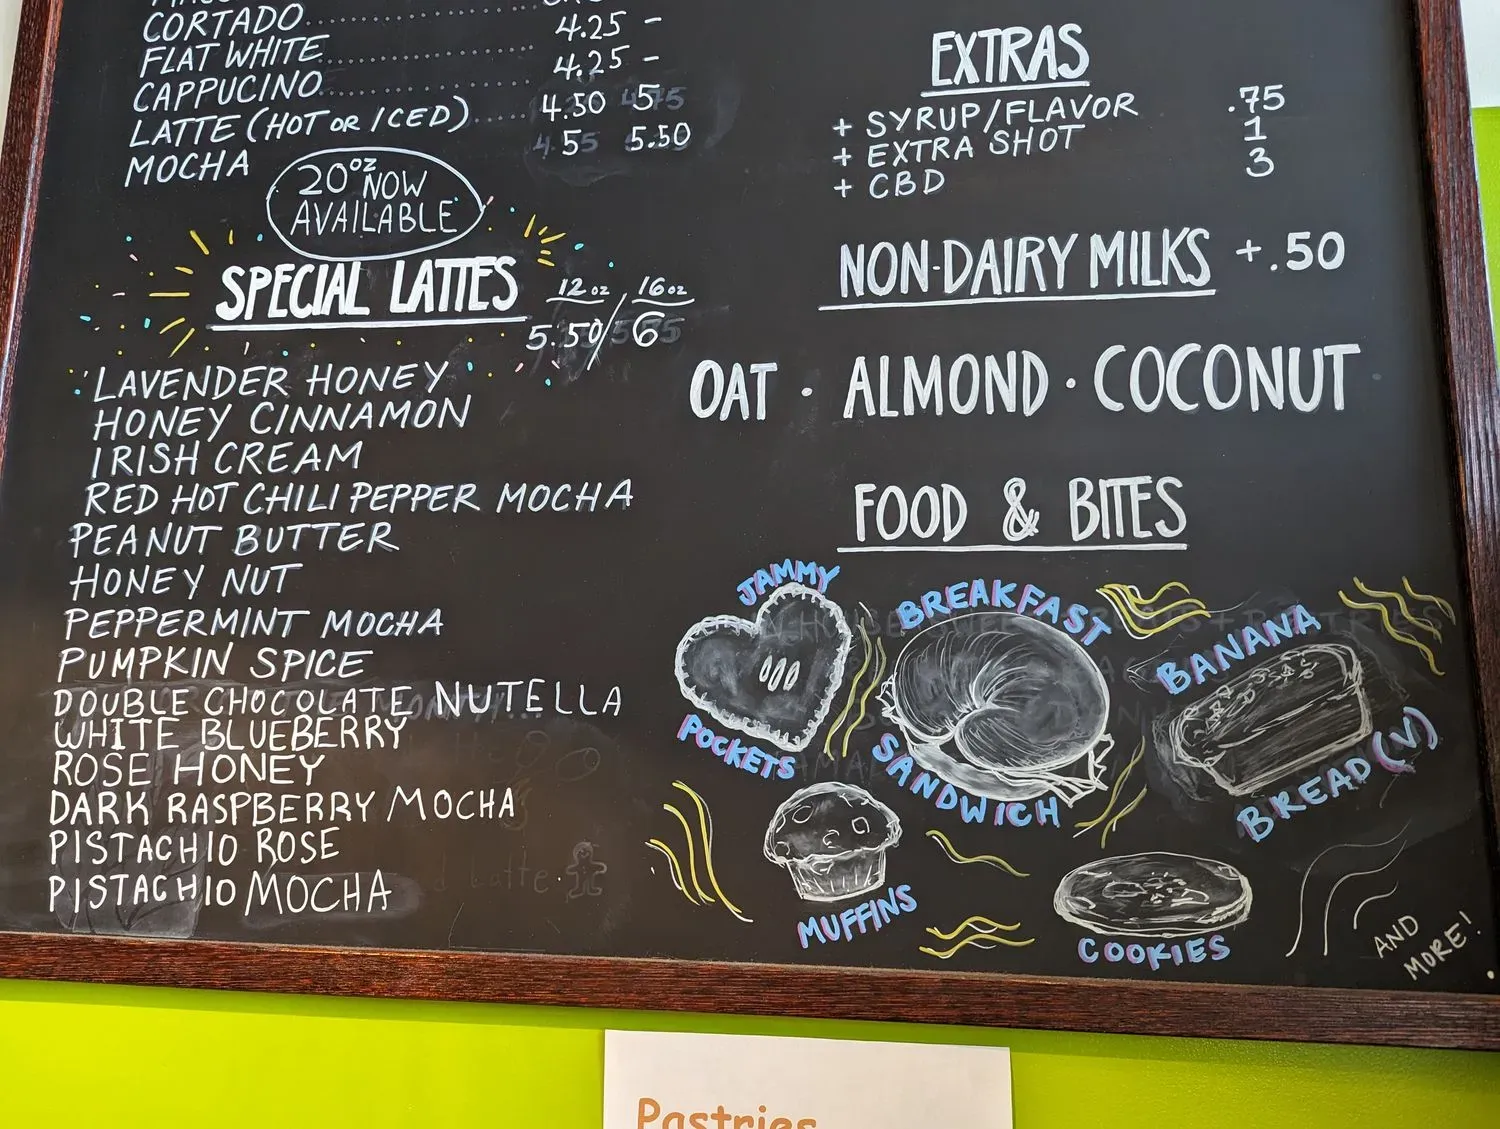 CORTADO.................... 4.25 -
FLAT WHITE.................... 4.25 -
CAPPUCINO.................... 4.50 5
LATTE (HOT OR ICED)...... 5 5.50
MOCHA
20oz NOW
AVAILABLE
SPECIAL LATTES
12oz / 16oz
5.50 / 6
LAVENDER HONEY
HONEY CINNAMON
IRISH CREAM
RED HOT CHILI PEPPER MOCHA
PEANUT BUTTER
HONEY NUT
PEPPERMINT MOCHA
PUMPKIN SPICE
DOUBLE CHOCOLATE NUTELLA
WHITE BLUEBERRY
ROSE HONEY
DARK RASPBERRY MOCHA
PISTACHIO ROSE
PISTACHIO MOCHA
EXTRAS
+ SYRUP/FLAVOR .75
+ EXTRA SHOT 1
+ CBD 3
NON-DAIRY MILKS +.50
OAT · ALMOND · COCONUT
FOOD & BITES
JAMMY
POCKETS
BREAKFAST
SANDWICH
BANANA
BREAD (V)
MUFFINS
COOKIES
AND
MORE!
Pastries